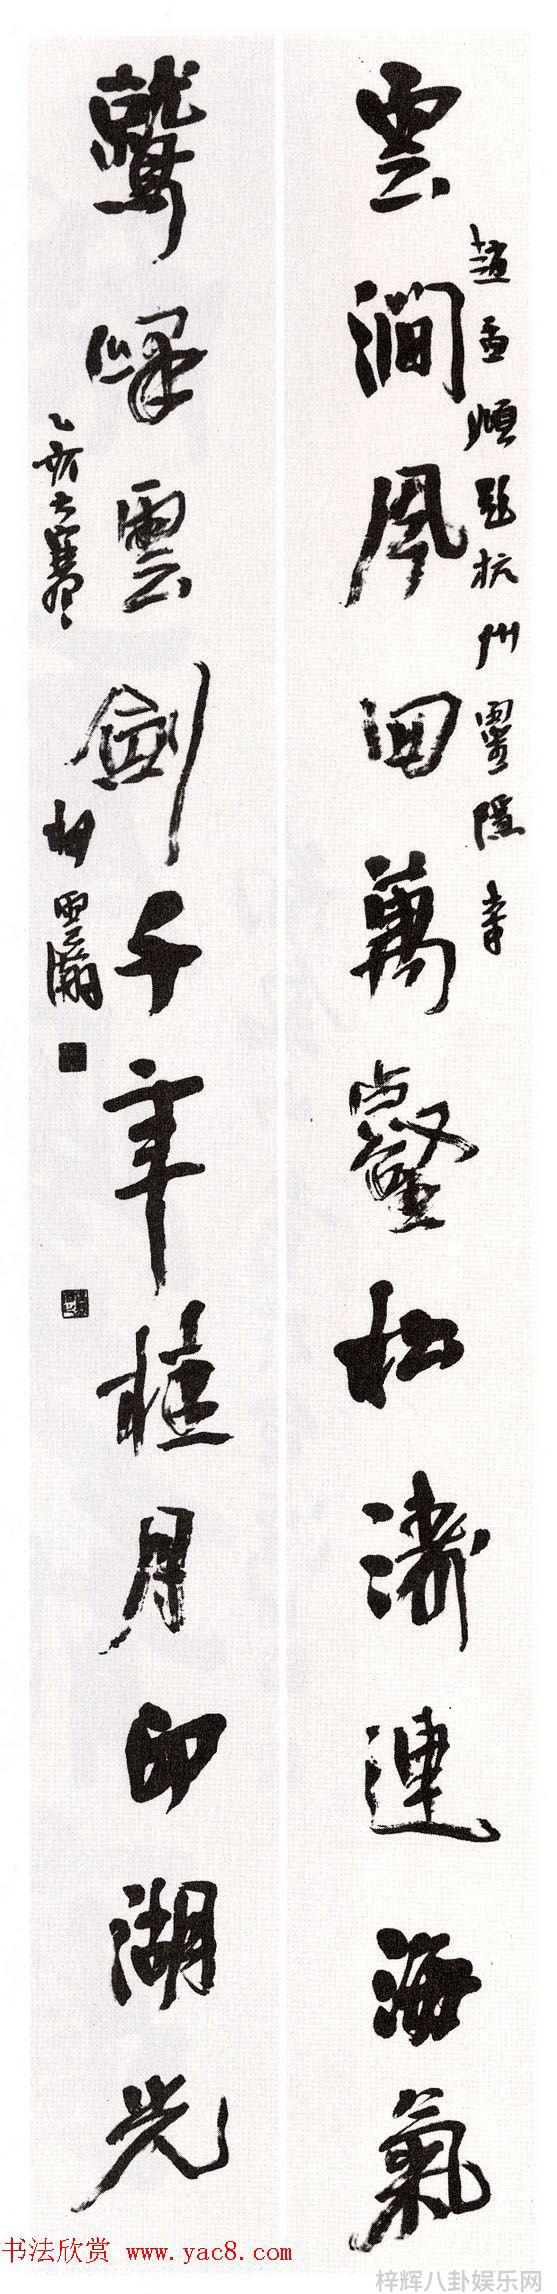 雲澗風回萬壑松濤連海氣
趙孟頫題杭州靈隱寺
鷲峰雲劍千年桂月印湖光
乙亥大寒
書法欣赏 www.yac8.com
梓辉八卦娱乐网